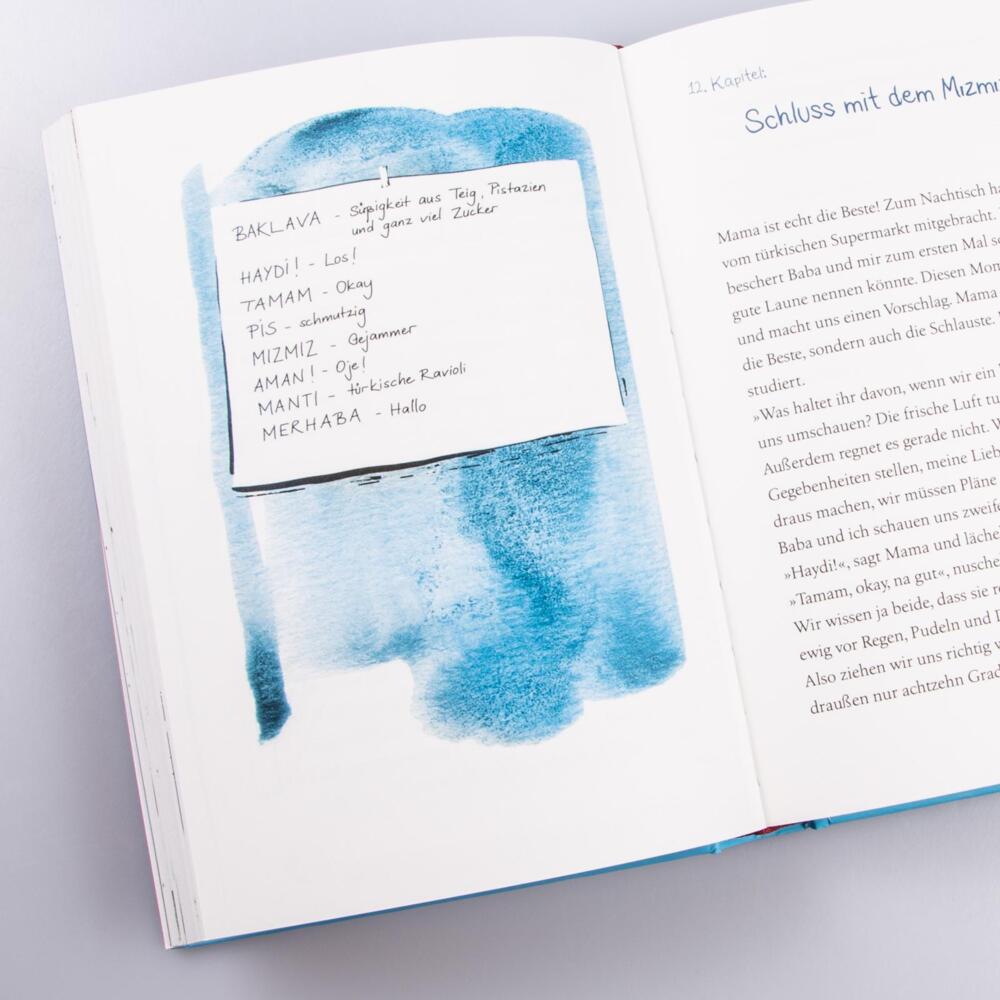 BAKLAVA - Süßigkeit aus Teig, Pistazien
und ganz viel Zucker
HAYDİ! - Los!
TAMAM - Okay
PİS - schmutzig
MIZMIZ - Gejammer
AMAN! - Oje!
MANTI - türkische Ravioli
MERHABA - Hallo
12. Kapitel:
Schluss mit dem Mızmı
Mama ist echt die Beste! Zum Nachtisch ha
vom türkischen Supermarkt mitgebracht.
beschert Baba und mir zum ersten Mal se
gute Laune nennen könnte. Diesen Mom
und macht uns einen Vorschlag. Mama
die Beste, sondern auch die Schlauste.
studiert.
»Was haltet ihr davon, wenn wir ein
uns umschauen? Die frische Luft tu
Außerdem regnet es gerade nicht. W
Gegebenheiten stellen, meine Lieb
draus machen, wir müssen Pläne
Baba und ich schauen uns zweife
»Haydi!«, sagt Mama und läche
»Tamam, okay, na gut«, nusche
Wir wissen ja beide, dass sie re
ewig vor Regen, Pudeln und D
Also ziehen wir uns richtig w
draußen nur achtzehn Grad